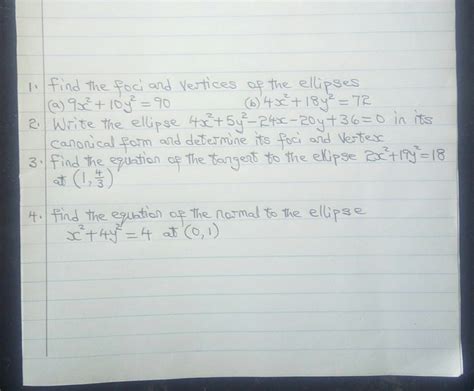 1. Find the foci and vertices of the ellipses
(a) 9x² + 10y² = 90 (b) 4x² + 18y² = 72
2. Write the ellipse 4x² + 5y² - 24x - 20y + 36 = 0 in its
canonical form and determine its foci and vertex
3. Find the equation of the tangent to the ellipse 2x² + 19y² = 18
at (1, 4/3)
4. Find the equation of the normal to the ellipse
x² + 4y² = 4 at (0,1)